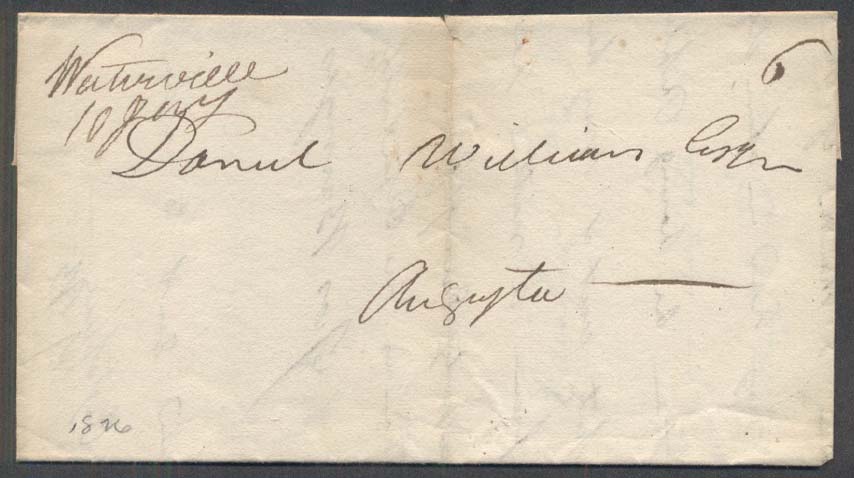 Waterville
10 Jany
6
Daniel Williams Esqr
Augusta
1826